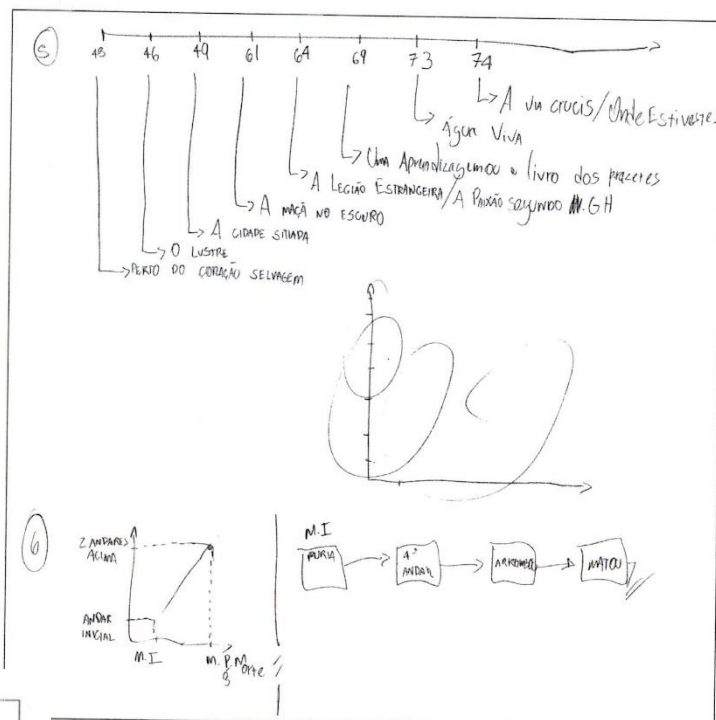 5
43 46 49 61 64 69 73 74
A via crucis/Onde Estivestes
Água Viva
Uma Aprendizagem ou o livro dos prazeres
A LEGIÃO ESTRANGEIRA/A PAIXÃO segundo GH
A MAÇÃ NO ESCURO
A CIDADE SITIADA
O LUSTRE
PERTO DO CORAÇÃO SELVAGEM
6
2 ANDARES
ACIMA
ANDAR
INICIAL
M.I
M.P.
Morte
M.I
FÚRIA
4º
ANDAR
MATOU